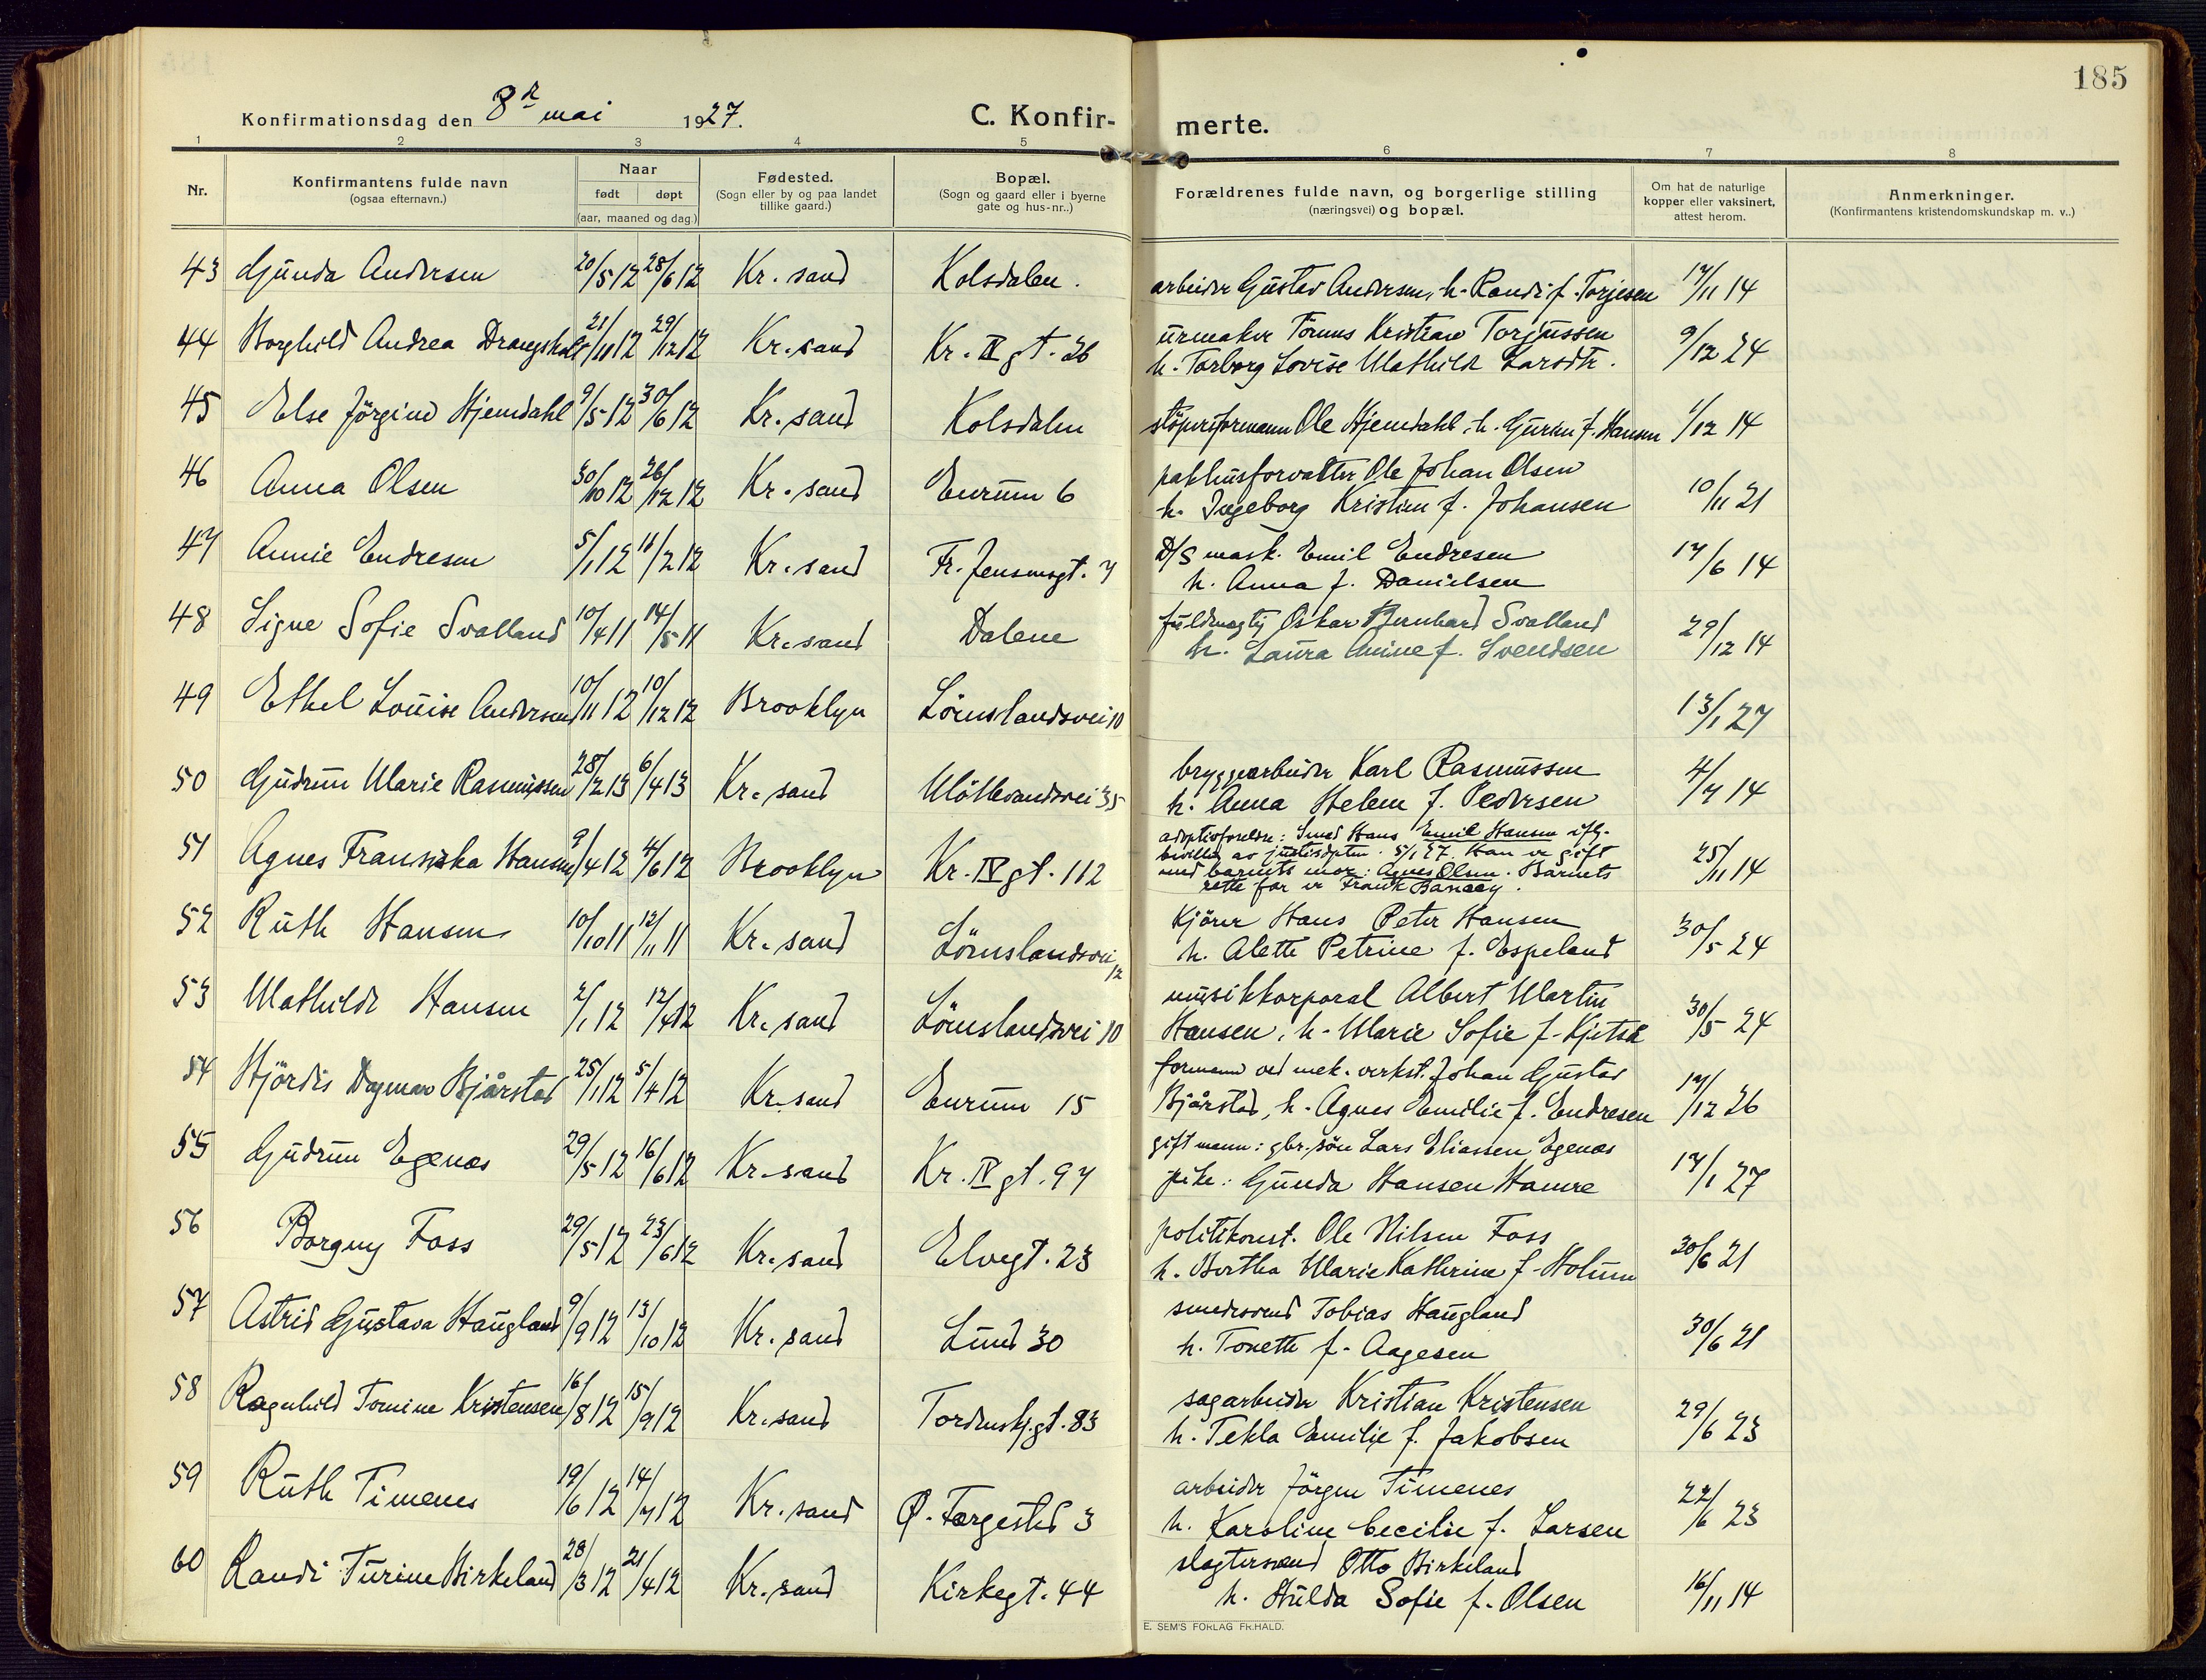 185
Konfirmationsdag den 8de mai 1927.
C. Konfir- merte.
1 2 3 4 5 6 7 8
Nr.
Konfirmantens fulde navn
(ogsaa efternavn.)
Naar
født døpt
(aar, maaned og dag.)
Fødested.
(Sogn eller by og paa landet
tillike gaard.)
Bopæl.
(Sogn og gaard eller i byerne
gate og hus-nr..)
Forældrenes fulde navn, og borgerlige stilling
(næringsvei) og bopæl.
Om hat de naturlige
kopper eller vaksinert,
attest herom.
Anmerkninger.
(Konfirmantens kristendomskundskap m. v..)
43 Gunda Andersen 20/5 12 28/6 12 Kr. sand Kolsdalen. arbeider Gustav Andersen, h. Randi f. Torjesen 17/11 14
44 Borghild Andrea Drangsholt 21/11 12 29/12 12 Kr. sand Kr. II gt. 26 urmaker Tomas Kristian Torjussen
h. Torborg Lovise Mathilde Larsdtr. 9/12 24
45 Else Jörgine Hjemdahl 9/5 12 30/6 12 Kr. sand Kolsdalen støperiformann Ole Hjemdahl, h. Gurine f. Hansen 1/12 14
46 Anna Olsen 30/10 12 26/12 12 Kr. sand Enrum 6 pakhusforvalter Ole Johan Olsen
h. Ingeborg Kristine f. Johansen 10/11 21
47 Annie Endresen 5/1 12 16/2 12 Kr. sand Fr. Jensensgt. 7 D/S mask. Emil Endresen
h. Anna f. Danielsen 17/6 14
48 Signe Sofie Svalland 10/4 11 14/5 11 Kr. sand Dalene fuldmægtig Oskar Bernhard Svalland
h. Laura Amine f. Svendsen 29/12 14
49 Ethel Louise Andersen 10/11 12 10/12 12 Brooklyn Lömslandsvei 10 13/1 27
50 Gudrun Marie Rasmussen 28/2 13 6/4 13 Kr. sand Møllevandsvei 35 bryggearbeider Karl Rasmussen
h. Anna Helene f. Pedersen 4/7 14
51 Agnes Fransiska Hansen 9/4 12 4/6 12 Brooklyn Kr. IV gt. 112 adoptivforeldre: Smed Hans Emil Hansen iflg.
bevilling av justisdptm. 5/1 27. Han er gift
med barnets mor: Agnes Olsen. Barnets
rette far er Frank 25/11 14
52 Ruth Hansen 10/10 11 12/11 11 Kr. sand Lömslandsvei 12 kjører Hans Peter Hansen
h. Alette Petrine f. Espeland 30/5 24
53 Mathilde Hansen 2/1 12 12/4 12 Kr. sand Lömslandsvei 10 musikkorporal Albert Martin
Hansen, h. Marie Sofie f. Kjetså 30/5 24
54 Hjördis Dagmar Bjårstad 25/1 12 5/4 12 Kr. sand Enrum 15 formann ved mek. verkst. Johan Gustav
Bjårstad, h. Agnes Emilie f. Endresen 17/12 26
55 Gudrun Egenæs 29/5 12 16/6 12 Kr. sand Kr. IV gt. 97 gift mann: gbr. søn Lars Eliassen Egenæs
pike: Gunda Hansen Hamre 17/1 27
56 Borgny Foss 29/5 12 23/6 12 Kr. sand Elvegt. 23 politikonst. Ole Nilsen Foss
h. Bertha Marie Kathrine f. Holum 30/6 21
57 Astrid Gustava Haugland 9/9 12 13/10 12 Kr. sand Lund 30 smedesvend Tobias Haugland
h. Tonette f. Aagesen 30/6 21
58 Ragnhild Tomine Kristensen 16/8 12 15/9 12 Kr. sand Tordenskj. gt. 83 sagarbeider Kristian Kristensen
h. Tekla Emilie f. Jakobsen 29/6 23
59 Ruth Timenes 19/6 12 14/7 12 Kr. sand Ø. Færgested 3 arbeider Jörgen Timenes
h. Karoline Cecilie f. Larsen 22/6 23
60 Randi Turine Birkeland 28/3 12 21/4 12 Kr. sand Kirkegt. 44 slagtersvend Otto Birkeland
h. Hulda Sofie f. Olsen 16/11 14
E. SEM'S FORLAG FR.HALD.